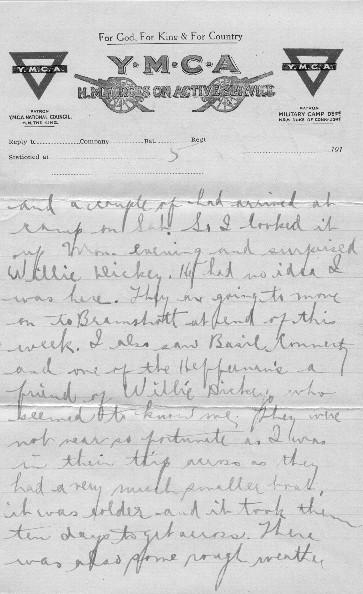 For God, For King & For Country
Y.M.C.A
Y.M.C.A
Y.M.C.A.
H.M. FORCES ON ACTIVE SERVICE
PATRON
PATRON
Y.M.C.A. NATIONAL COUNCIL.
MILITARY CAMP DEPT
H.M. THE KING.
H.R.H. DUKE OF CONNAUGHT
Reply to Company Bat. Regt
Stationed at 5 191
and a couple of had arrived at
camp on Sat. So I looked it
up Mon. evening and surprised
Willie Dickey. He had no idea I
was here. They are going to move
on to Bramshott at end of this
week. I also saw Basil Connerty
and one of the Heffernan's a
friend of Willie Dickey, who
seemed to know me. They were
not near so fortunate as I was
in their trip across as they
had a very much smaller boat,
it was older and it took them
ten days to get across. There
was also some rough weather